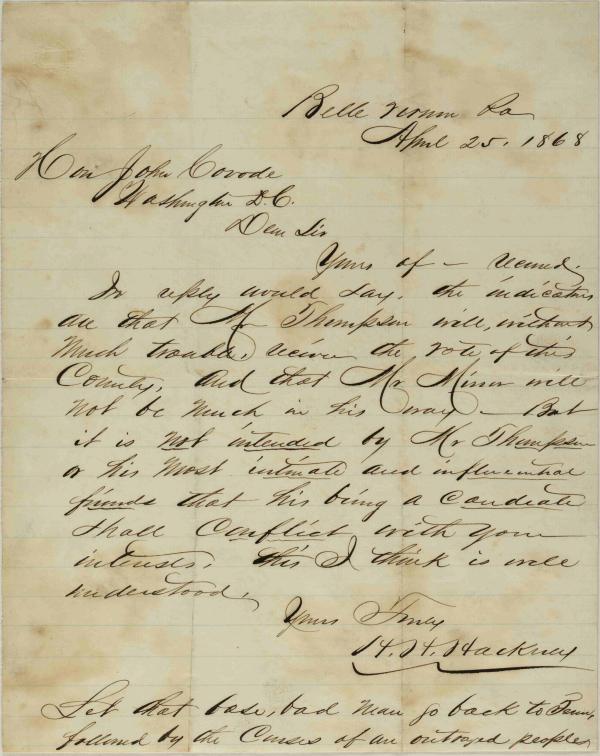 Belle Vernon Pa
April 25, 1868
Hon John Covode
Washington D.C.
Dear Sir
Yours of – received.
In reply would say, the indications
are that Mr Thompson will, without
much trouble, receive the vote of this
County, and that Mr Minor will
not be much in his way – But
it is not intended by Mr Thompson
or his most intimate and influential
friends that his being a candidate
shall conflict with your
interests. this I think is well
understood.
Yours Truly
H. H. Hackney
Let that base, bad man go back to Tenn,
followed by the Curses of an outraged people,